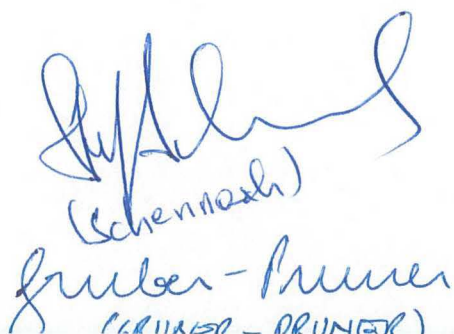 (Schennach)
Gruber-Pruner
(GRUBER-PRUNER)